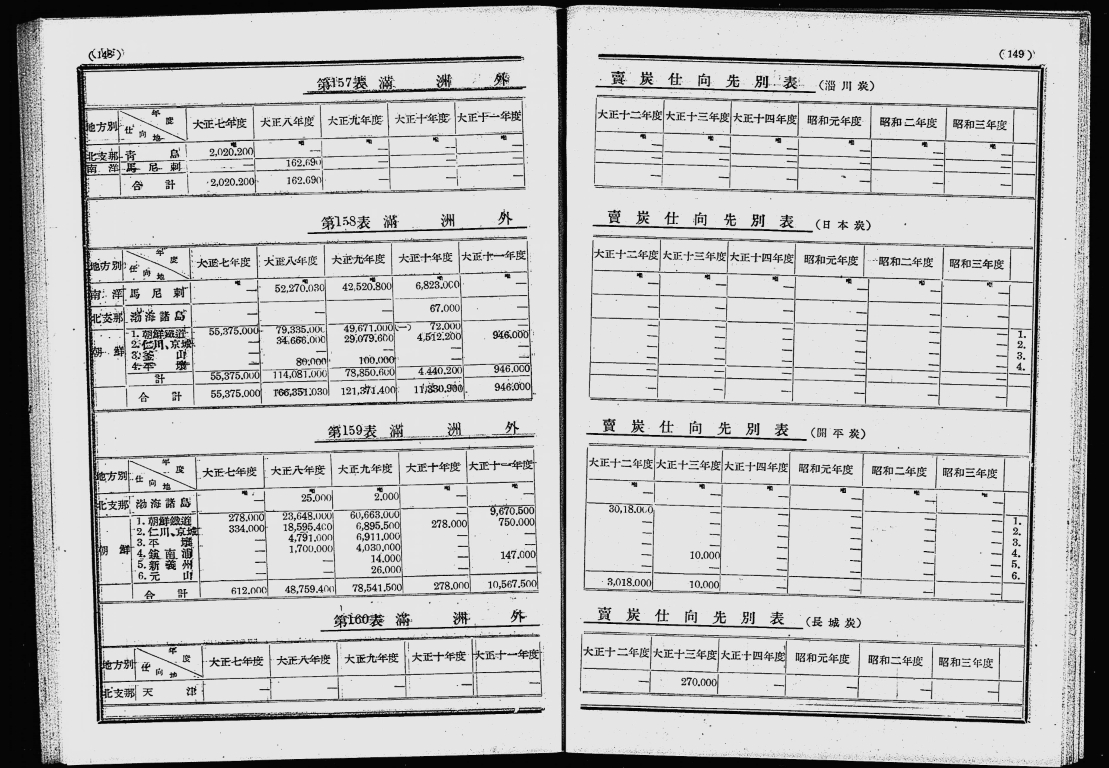 (148)
第157表 滿洲外
地方別 年度 仕向地 大正七年度 大正八年度 大正九年度 大正十年度 大正十一年度
北支那 青島 2,020.200 — — — —
南洋 馬尼剌 — 162.690 — — —
合計 2,020.200 162.690 — — —
第158表 滿洲外
地方別 年度 仕向地 大正七年度 大正八年度 大正九年度 大正十年度 大正十一年度
南洋 馬尼剌 — 52,270.030 42,520.800 6,823.000 —
北支那 渤海諸島 — — — 67.000 —
朝鮮 1. 朝鮮鐵道 55,375.000 79,335.000 49,671.000 (—) 72.000 —
2. 仁川、京城 — 34,666.000 29,079.600 4,512.200 946.000
3. 釜山 — — — — —
4. 平壤 — 80.000 100.000 — —
計 55,375.000 114,081.000 78,850.600 4,440.200 946.000
合計 55,375.000 166,351.030 121,371.400 11,330.200 946.000
第159表 滿洲外
地方別 年度 仕向地 大正七年度 大正八年度 大正九年度 大正十年度 大正十一年度
北支那 渤海諸島 — 25.000 2.000 — 9,670.500
朝鮮 1. 朝鮮鐵道 278.000 23,648.000 60,663.000 — 750.000
2. 仁川、京城 334.000 18,595.400 6,895.500 278.000 —
3. 平壤 — 4,791.000 6,911.000 — —
4. 鎮南浦 — 1,700.000 4,030.000 — 147.000
5. 新義州 — — 14.000 — —
6. 元山 — — 26.000 — —
合計 612.000 48,759.400 78,541.500 278.000 10,567.500
第160表 滿洲外
地方別 年度 仕向地 大正七年度 大正八年度 大正九年度 大正十年度 大正十一年度
北支那 天津 — — — — —
(149)
賣炭仕向先別表 (淄川炭)
大正十二年度 大正十三年度 大正十四年度 昭和元年度 昭和二年度 昭和三年度
— — — — — —
— — — — — —
— — — — — —
賣炭仕向先別表 (日本炭)
大正十二年度 大正十三年度 大正十四年度 昭和元年度 昭和二年度 昭和三年度
— — — — — —
— — — — — —
— — — — — — 1.
— — — — — — 2.
— — — — — — 3.
— — — — — — 4.
— — — — — —
— — — — — —
賣炭仕向先別表 (開平炭)
大正十二年度 大正十三年度 大正十四年度 昭和元年度 昭和二年度 昭和三年度
30,18.000 — — — — —
— — — — — — 1.
— — — — — — 2.
— — — — — — 3.
— 10.000 — — — — 4.
— — — — — — 5.
— — — — — — 6.
3,018.000 10.000 — — — —
賣炭仕向先別表 (長城炭)
大正十二年度 大正十三年度 大正十四年度 昭和元年度 昭和二年度 昭和三年度
— 270.000 — — — —